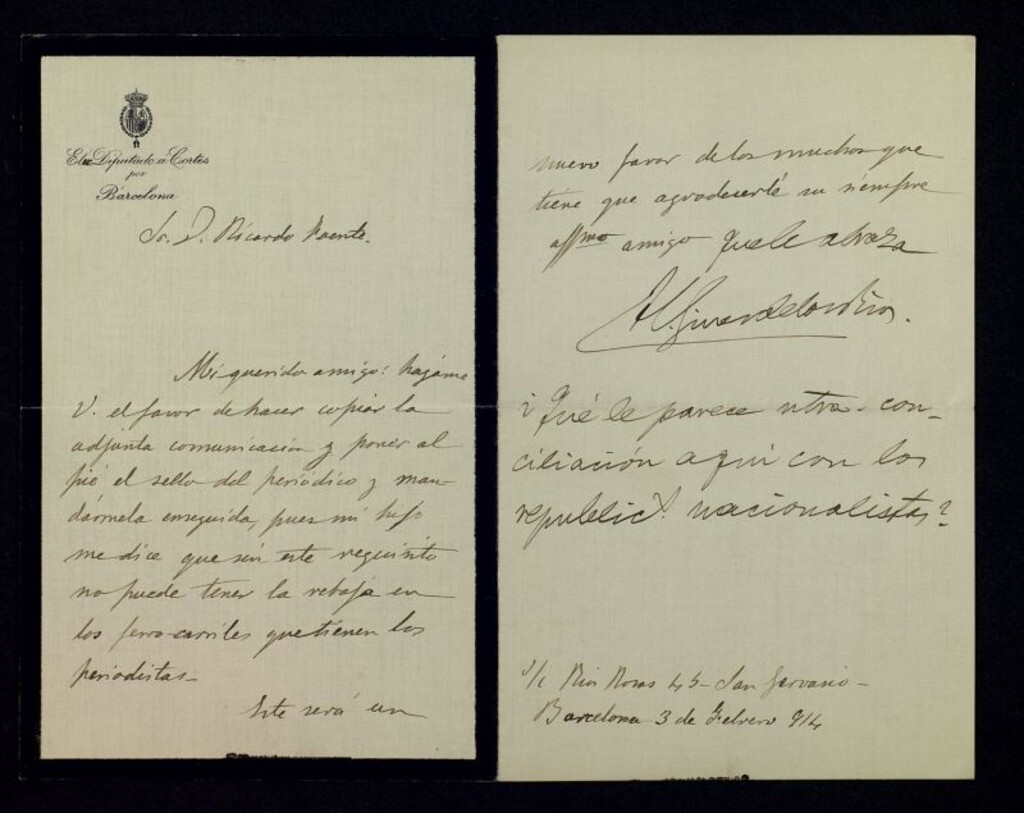 El Diputado à Cortes
por
Barcelona
Sr. D. Ricardo Fuente.
Mi querido amigo: hágame
V. el favor de hacer copiar la
adjunta comunicación y poner al
pié el sello del periódico y man-
dármela enseguida, pues mi hijo
me dice que sin este requisito
no puede tener la rebaja en
los ferro-carriles que tienen los
periodistas—
Este será un
nuevo favor de los muchos que
tiene que agradecerle su siempre
affmo amigo que le abraza
¿Qué le parece ntra. con-
ciliación aquí con los
republic.s nacionalistas?
s/c Rios Rosas 45— San Gervasio—
Barcelona 3 de Febrero 914